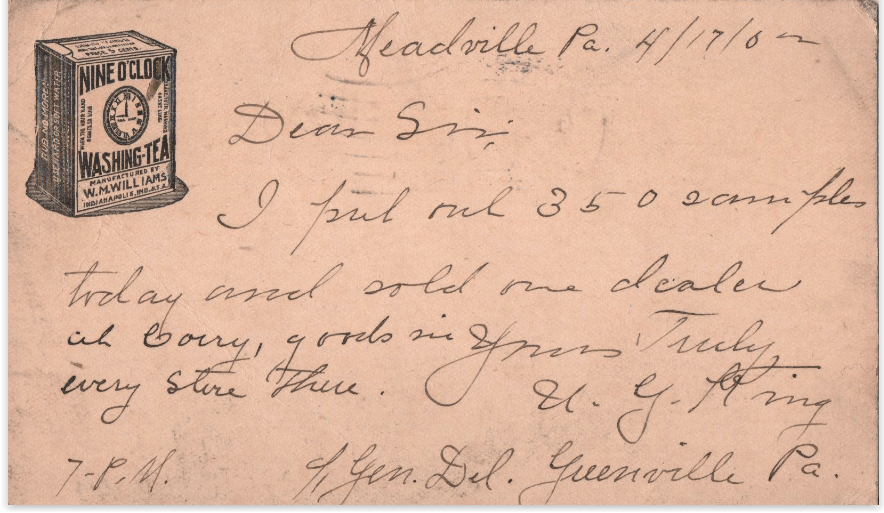 PRICE 5 CENTS.
NINE O'CLOCK
WASHING-TEA
MANUFACTURED BY
W.M. WILLIAMS
INDIANAPOLIS, IND., U.S.A.
RUB NO MORE
Meadville Pa. 4/17/0
Dear Sir,
I put out 350 samples
today and sold one dealer
at Corry, goods in
every store there.
Yours Truly
U. G. King
7-P.M.
Gen. Del. Greenville Pa.